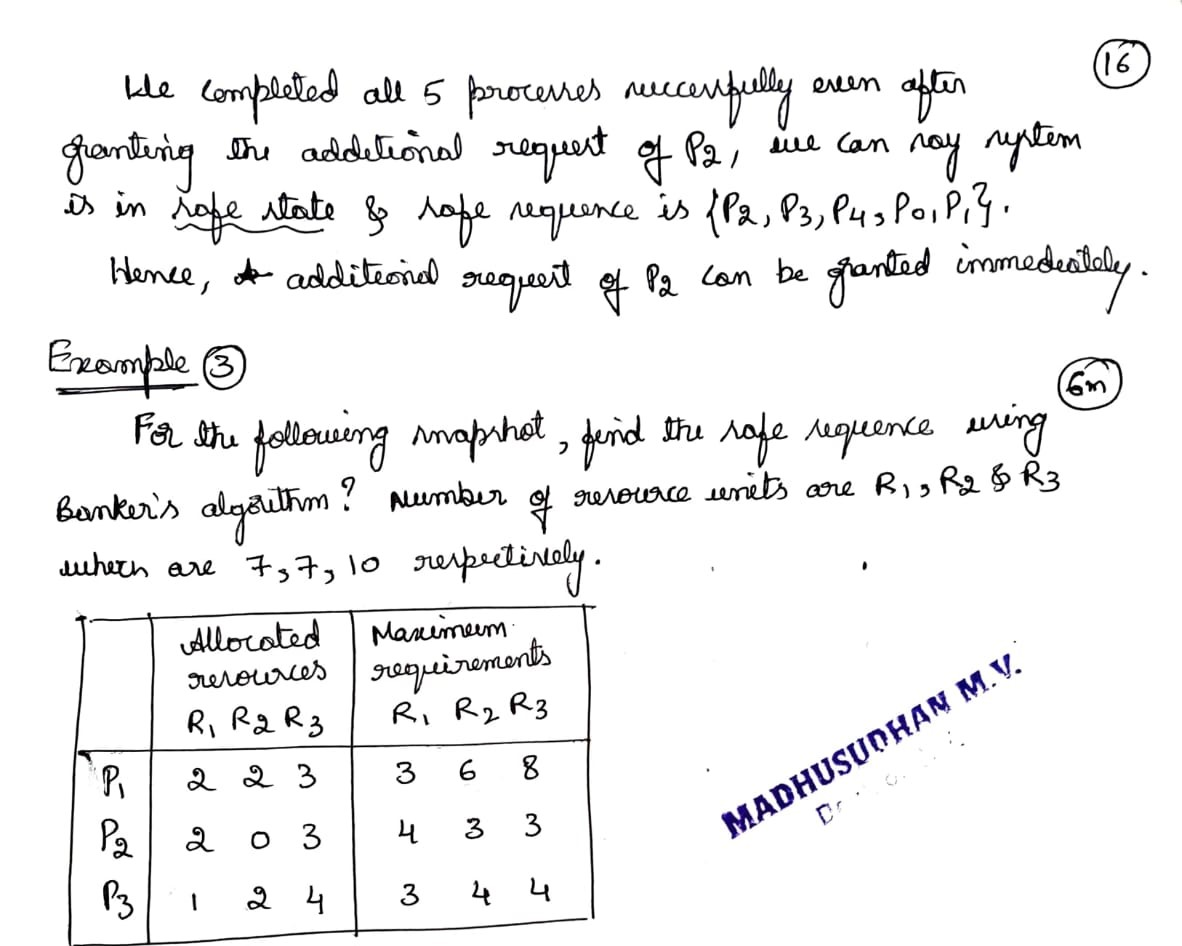 16
We completed all 5 processes successfully even after
granting the additional request of P2, we can say system
is in safe state & safe sequence is {P2, P3, P4, P0, P1}.
Hence, additional request of P2 can be granted immediately.
Example 3
6m
For the following snapshot, find the safe sequence using
Banker's algorithm? Number of resource units are R1, R2 & R3
which are 7, 7, 10 respectively.
Allocated resources Maximum requirements
R1 R2 R3 R1 R2 R3
P1 2 2 3 3 6 8
P2 2 0 3 4 3 3
P3 1 2 4 3 4 4
MADHUSUDHAN M.V.